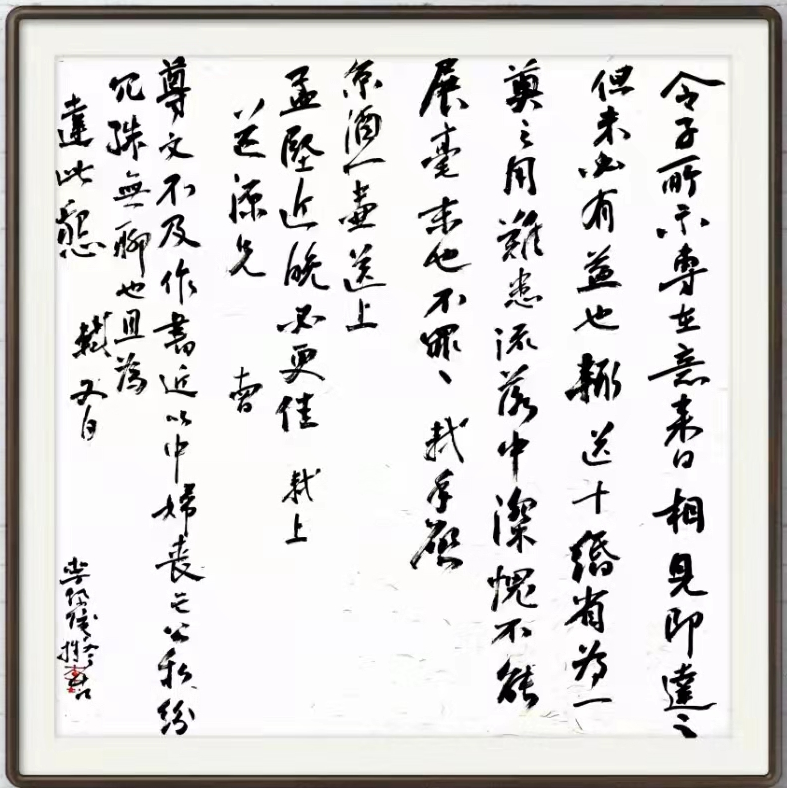 令子所示專在意來日相見即達之
但未必有益也輙送十縑省為一
奠之用難患流落中深愧不能
展毫末也不罪〻軾手啟
京酒一壺送上
孟堅近晚必更佳 軾上
道源兄 曹
尊丈不及作書近以中婦喪亡公私紛
冗殊無聊也且為
達此懇 軾又白